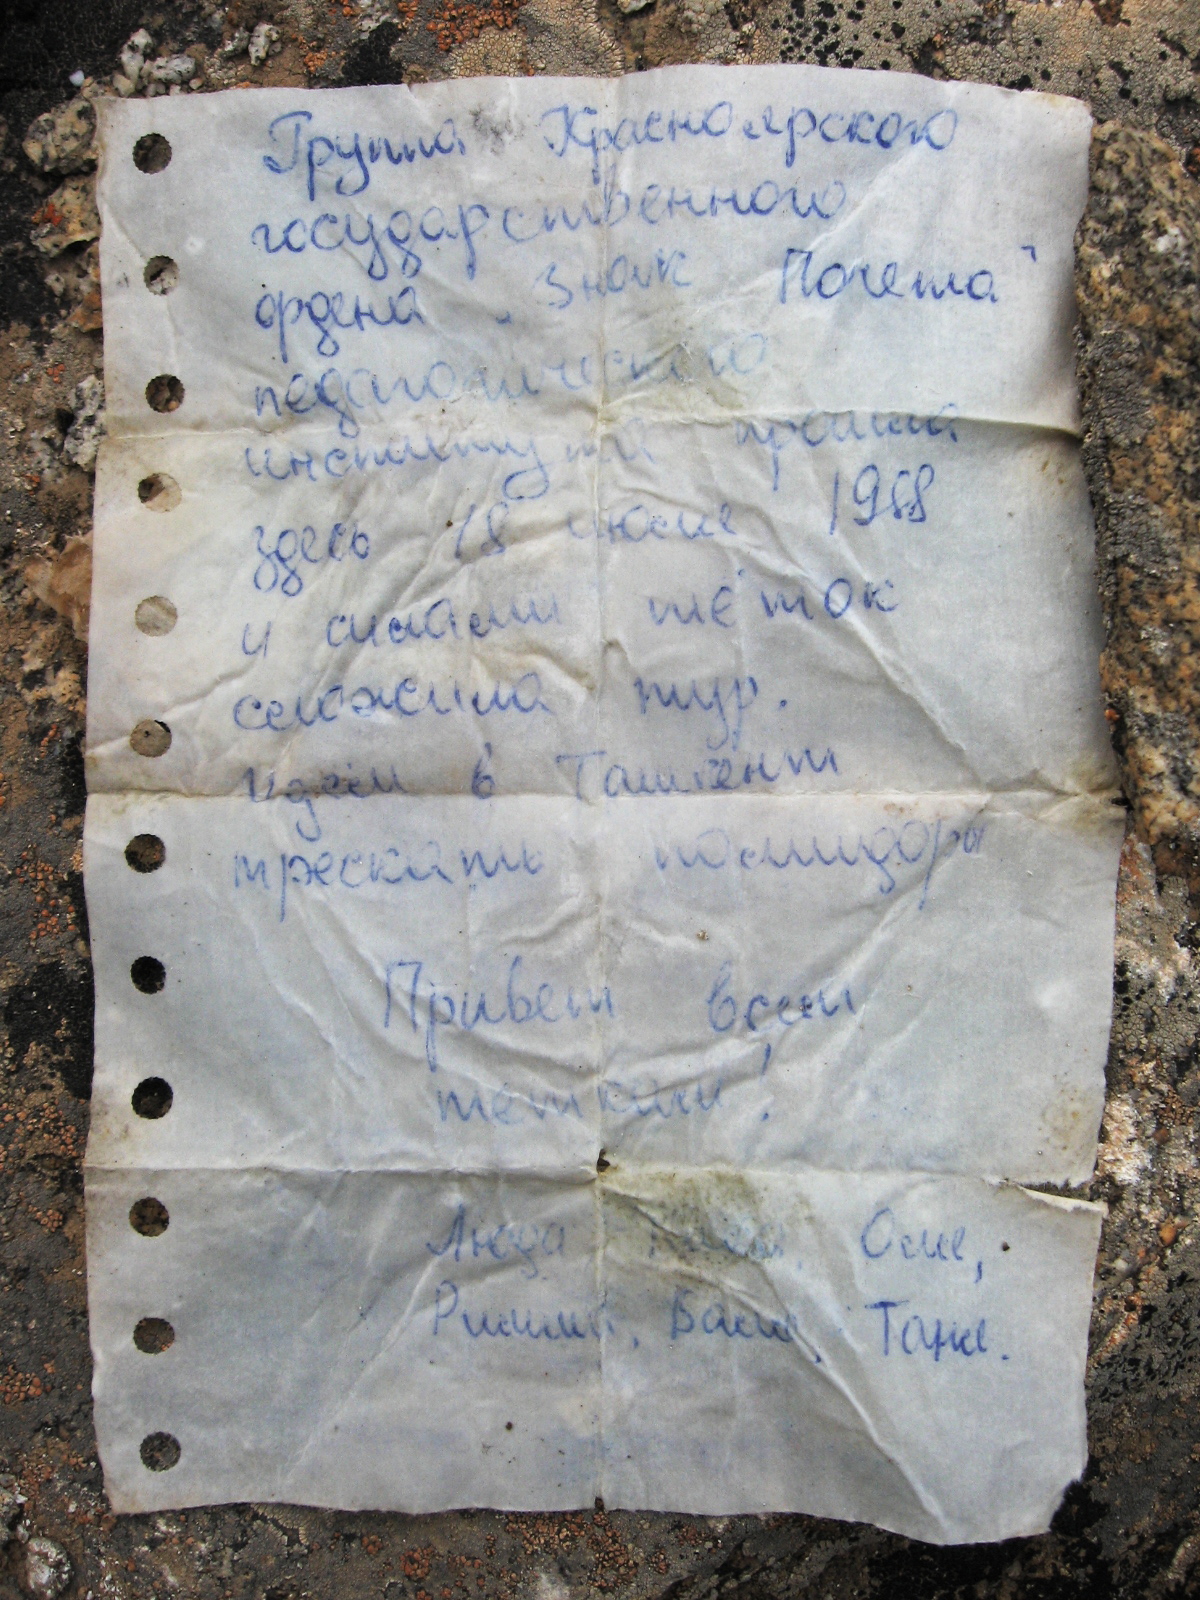 Группа Красноярского
государственного
ордена „Знак Почета"
педагогического
института прошла
здесь 18 июля 1988
и силами тёток
сложила тур.
Идём в Ташкент
трескать помидоры
Привет всем
тёткам!
Люда, Оля,
Римма, Валя, Таня.